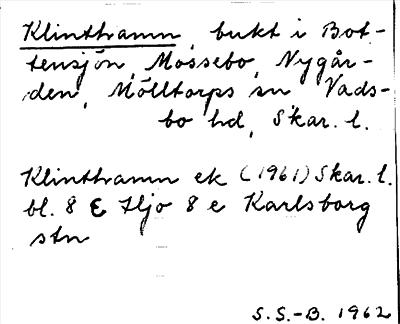 Klinthamn, bukt i Bot-
tensjön, Mossebo, Nygår-
den, Mölltorps sn Vads-
bo hd, Skar. l.
Klinthamn ek (1961) Skar. l.
bl. 8 E Hjo 8 e Karlsborg
stn
S.S.-B. 1962